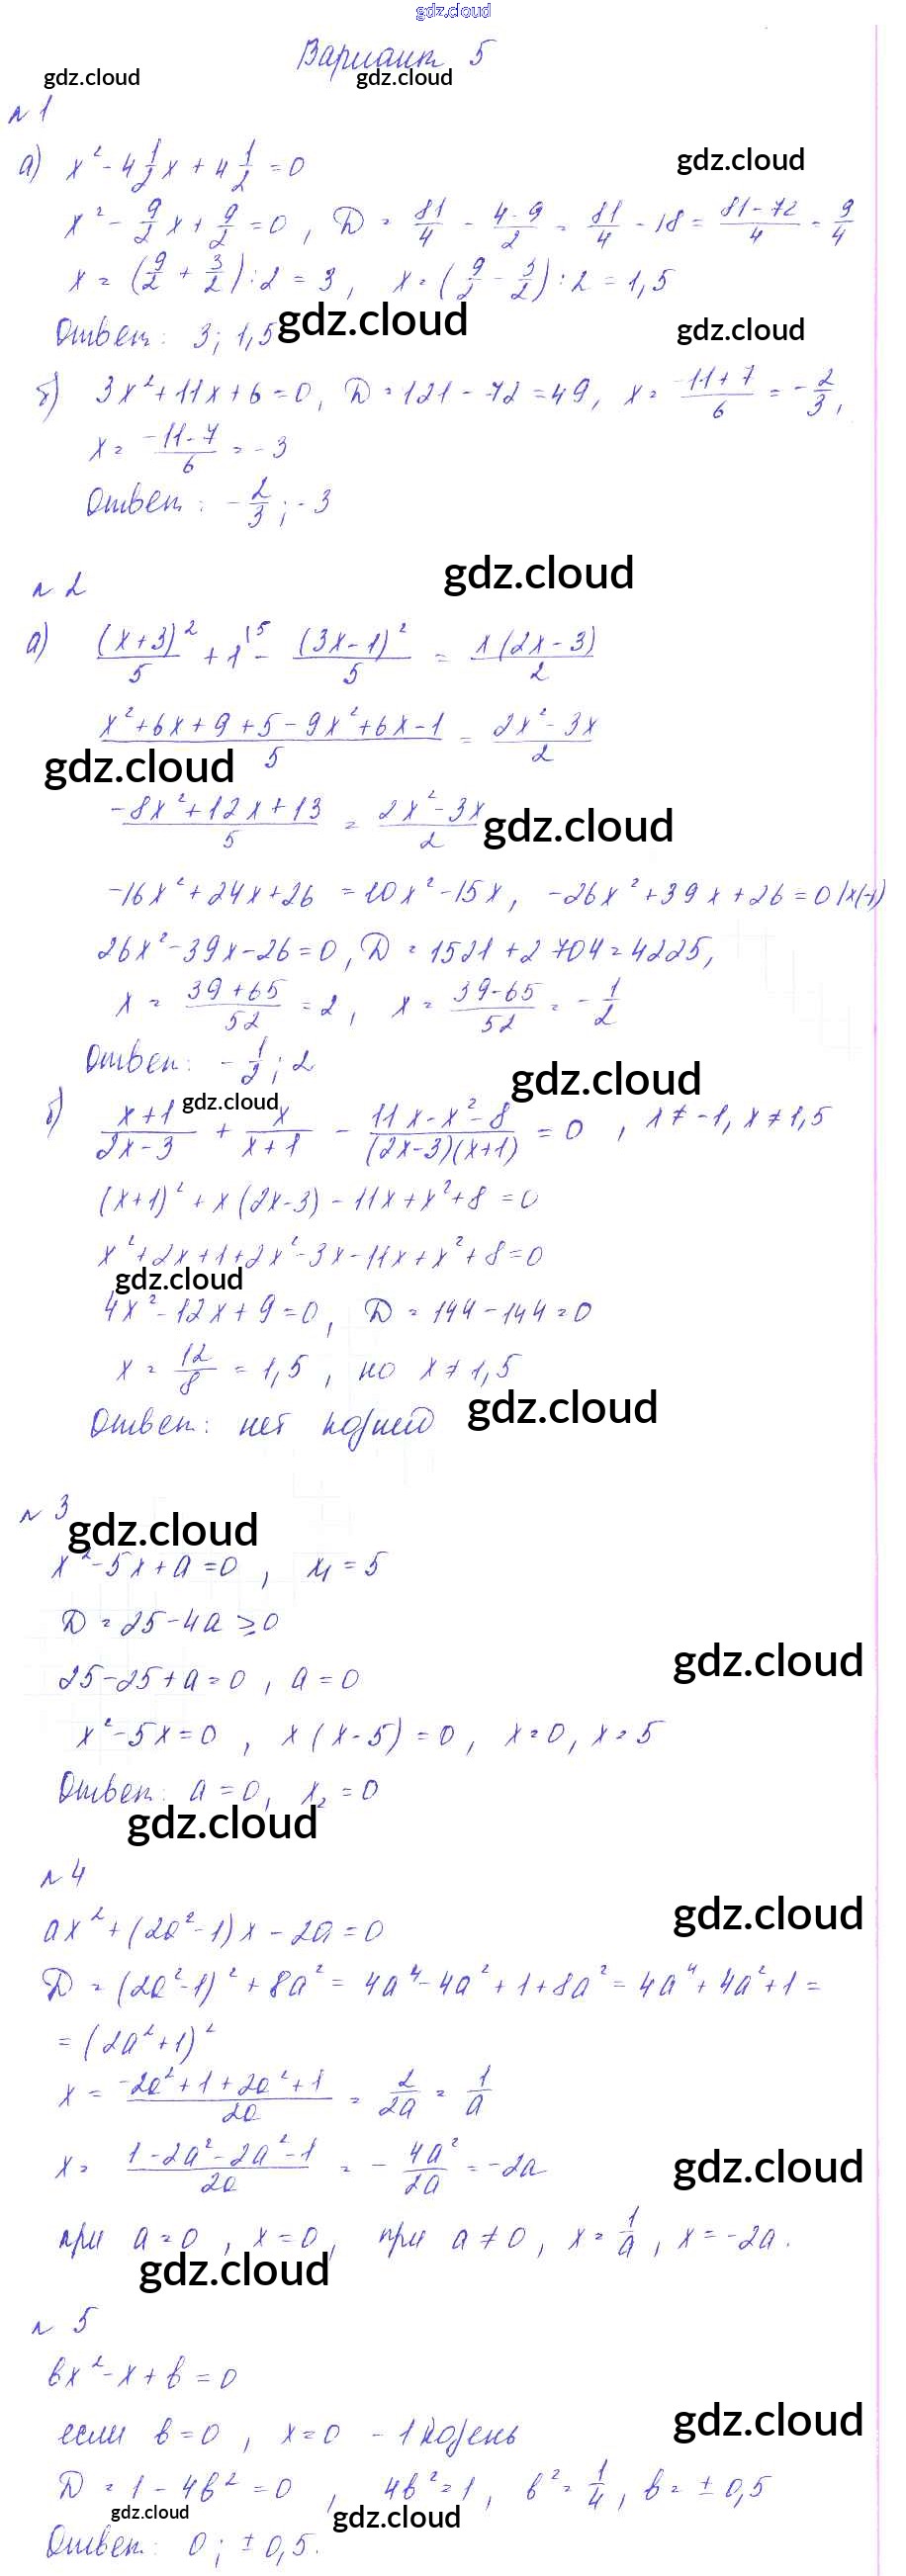 gdz.cloud
Вариант 5
gdz.cloud gdz.cloud
№ 1
а) x² - 4 1/2 x + 4 1/2 = 0
gdz.cloud
x² - 9/2 x + 9/2 = 0, D = 81/4 - 4·9/2 = 81/4 - 18 = (81-72)/4 = 9/4
x = (9/2 + 3/2) : 2 = 3, x = (9/2 - 3/2) : 2 = 1,5
Ответ: 3; 1,5
gdz.cloud gdz.cloud
б) 3x² + 11x + 6 = 0, D = 121 - 72 = 49, x = (-11+7)/6 = -2/3,
x = (-11-7)/6 = -3
Ответ: -2/3; -3
gdz.cloud
№ 2
а) (x+3)²/5 + 1 (5 - (3x-1)²/5 = x(2x-3)/2
(x²+6x+9+5-9x²+6x-1)/5 = (2x²-3x)/2
gdz.cloud
(-8x²+12x+13)/5 = (2x²-3x)/2
gdz.cloud
-16x²+24x+26 = 10x²-15x, -26x²+39x+26=0 |x(-1)
26x²-39x-26=0, D = 1521+2704=4225,
x = (39+65)/52 = 2, x = (39-65)/52 = -1/2
Ответ: -1/2; 2
gdz.cloud
gdz.cloud
б) (x+1)/(2x-3) + x/(x+1) - (11x-x²-8)/((2x-3)(x+1)) = 0, x ≠ -1, x ≠ 1,5
(x+1)² + x(2x-3) - 11x+x²+8 = 0
x²+2x+1+2x²-3x-11x+x²+8=0
gdz.cloud
4x²-12x+9=0, D = 144-144=0
x = 12/8 = 1,5, но x ≠ 1,5
gdz.cloud
Ответ: нет корней
№ 3
gdz.cloud
x²-5x+a=0, x₁=5
D = 25-4a ≥ 0
gdz.cloud
25-25+a=0, a=0
x²-5x=0, x(x-5)=0, x=0, x=5
Ответ: a=0, x₂=0
gdz.cloud
№ 4
gdz.cloud
ax²+(2a²-1)x-2a=0
D = (2a²-1)²+8a² = 4a⁴-4a²+1+8a² = 4a⁴+4a²+1 =
= (2a²+1)²
x = (-2a²+1+2a²+1)/2a = 2/2a = 1/a
x = (1-2a²-2a²-1)/2a = -4a²/2a = -2a
gdz.cloud
при a=0, x=0, при a≠0, x=1/a, x=-2a.
gdz.cloud
№ 5
bx²-x+b=0
gdz.cloud
если b=0, x=0 - 1 корень
D = 1-4b²=0, 4b²=1, b²=1/4, b=±0,5
gdz.cloud gdz.cloud
Ответ: 0; ±0,5.